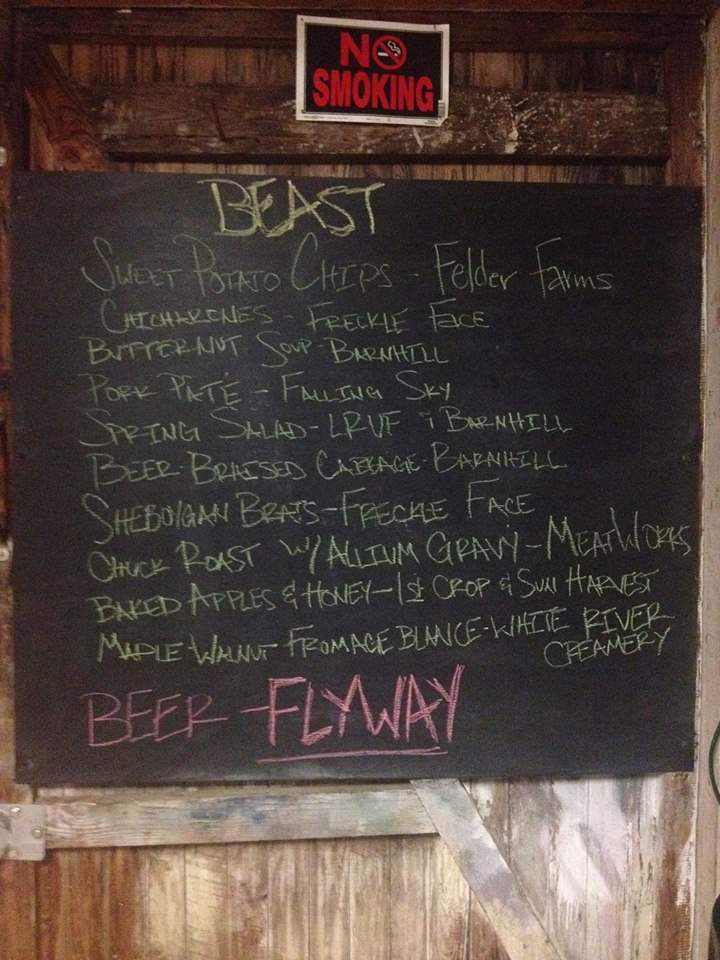 NO
SMOKING
BEAST
SWEET POTATO CHIPS - Felder Farms
CHICHARONES - FRECKLE FACE
BUTTERNUT SOUP - BARNHILL
PORK PATÉ - FALLING SKY
SPRING SALAD - LRUF & BARNHILL
BEER-BRAISED CABBAGE - BARNHILL
SHEBOYGAN BRATS - FRECKLE FACE
CHUCK ROAST W/ ALLIUM GRAVY - MEATWORKS
BAKED APPLES & HONEY - 1st CROP & SUN HARVEST
MAPLE WALNUT FROMAGE BLANCE - WHITE RIVER
CREAMERY
BEER - FLYWAY